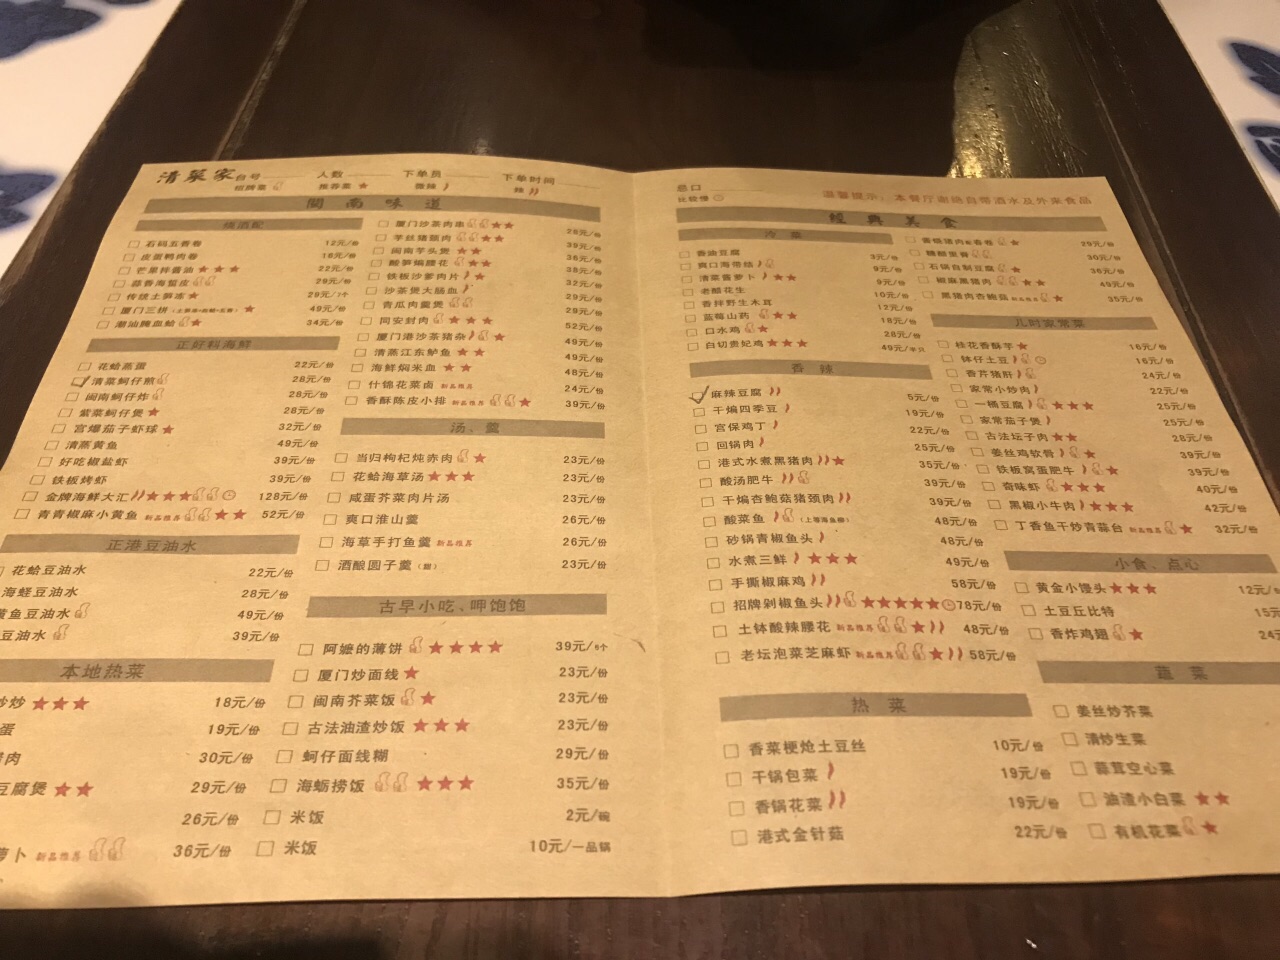 清菜家 台号 人数 下单员 下单时间
招牌菜 推荐菜 ★ 微辣 辣
闽南味道
石码五香卷 12元/份
皮蛋鸭肉卷 18元/份
芒果拌酱油 ★★★ 22元/份
蒜香海蜇皮 29元/份
传统土笋冻 ★ 29元/3个
厦门三拼 ★ 49元/份
潮汕腌血蛤 ★ 34元/份
正好料海鲜
花蛤蒸蛋 22元/份
清菜蚵仔煎 28元/份
闽南蚵仔炸 28元/份
紫菜蚵仔煲 ★ 28元/份
宫爆茄子虾球 ★ 32元/份
清蒸黄鱼 49元/份
好吃椒盐虾 39元/份
铁板烤虾 39元/份
金牌海鲜大汇 ★★★ 128元/份
青青椒麻小黄鱼 新品推荐 ★★ 52元/份
正港豆油水
花蛤豆油水 22元/份
海蛏豆油水 28元/份
黄鱼豆油水 49元/份
豆油水 39元/份
本地热菜
炒 ★★★ 18元/份
蛋 19元/份
肉 30元/份
豆腐煲 ★★ 29元/份
26元/份
萝卜 新品推荐 36元/份
厦门沙茶肉串 ★★ 25元/份
芋丝猪颈肉 ★★ 39元/份
闽南芋头煲 ★★ 36元/份
酸笋煸腰花 ★★ 38元/份
铁板沙爹肉片 ★ 35元/份
沙茶煲大肠血 32元/份
青瓜肉羹煲 29元/份
同安封肉 ★★★ 29元/份
厦门港沙茶猪杂 ★ 52元/份
清蒸江东鲈鱼 ★★ 49元/份
海鲜焖米血 ★★ 49元/份
48元/份
什锦花菜卤 新品推荐 24元/份
香酥陈皮小排 新品推荐 ★ 39元/份
汤、羹
当归枸杞炖赤肉 ★ 23元/份
花蛤海草汤 ★★★ 23元/份
咸蛋芥菜肉片汤 23元/份
爽口淮山羹 26元/份
海草手打鱼羹 新品推荐 26元/份
酒酿圆子羹（甜） 23元/份
古早小吃、呷饱饱
阿嬷的薄饼 ★★★★ 39元/6个
厦门炒面线 ★ 23元/份
闽南芥菜饭 ★ 23元/份
古法油渣炒饭 ★★★ 23元/份
蚵仔面线糊 29元/份
海蛎捞饭 ★★★ 35元/份
米饭 2元/碗
米饭 10元/一品锅
忌口 温馨提示：本餐厅谢绝自带酒水及外来食品
比较慢
經典美食
冷菜
香油豆腐 3元/份
爽口海带结 9元/份
清菜酱萝卜 ★★ 9元/份
老醋花生 10元/份
香拌野生木耳 12元/份
蓝莓山药 ★★ 18元/份
口水鸡 ★ 28元/份
白切贵妃鸡 ★★★ 49元/半只
香辣
麻辣豆腐 5元/份
干煸四季豆 19元/份
宫保鸡丁 22元/份
回锅肉 25元/份
港式水煮黑猪肉 ★ 35元/份
酸汤肥牛 39元/份
干煸杏鲍菇猪颈肉 39元/份
酸菜鱼 48元/份
砂锅青椒鱼头 48元/份
水煮三鲜 ★★★ 49元/份
手撕椒麻鸡 58元/份
招牌剁椒鱼头 ★★★★★ 78元/份
土钵酸辣腰花 新品推荐 ★ 48元/份
老坛泡菜芝麻虾 新品推荐 ★ 58元/份
热菜
香菜梗炝土豆丝 10元/份
干锅包菜 19元/份
香锅花菜 19元/份
港式金针菇 22元/份
29元/份
糖醋里脊 30元/份
石锅自制豆腐 ★ 36元/份
椒麻黑猪肉 ★★ 49元/份
黑猪肉杏鲍菇 新品推荐 ★ 35元/份
儿时家常菜
桂花香酥芋 ★ 16元/份
钵仔土豆 16元/份
香芹猪肝 24元/份
家常小炒肉 22元/份
一桶豆腐 ★★★ 25元/份
家常茄子煲 25元/份
古法坛子肉 ★★ 28元/份
姜丝鸡软骨 ★ 39元/份
铁板窝蛋肥牛 ★ 39元/份
奇味虾 ★★★ 40元/份
黑椒小牛肉 ★★★ 42元/份
丁香鱼干炒青蒜台 新品推荐 ★ 32元/份
小食、点心
黄金小馒头 ★★★ 12元/
土豆丘比特 15元
香炸鸡翅 ★ 24元
蔬菜
姜丝炒芥菜
清炒生菜
蒜茸空心菜
油渣小白菜 ★★
有机花菜 ★